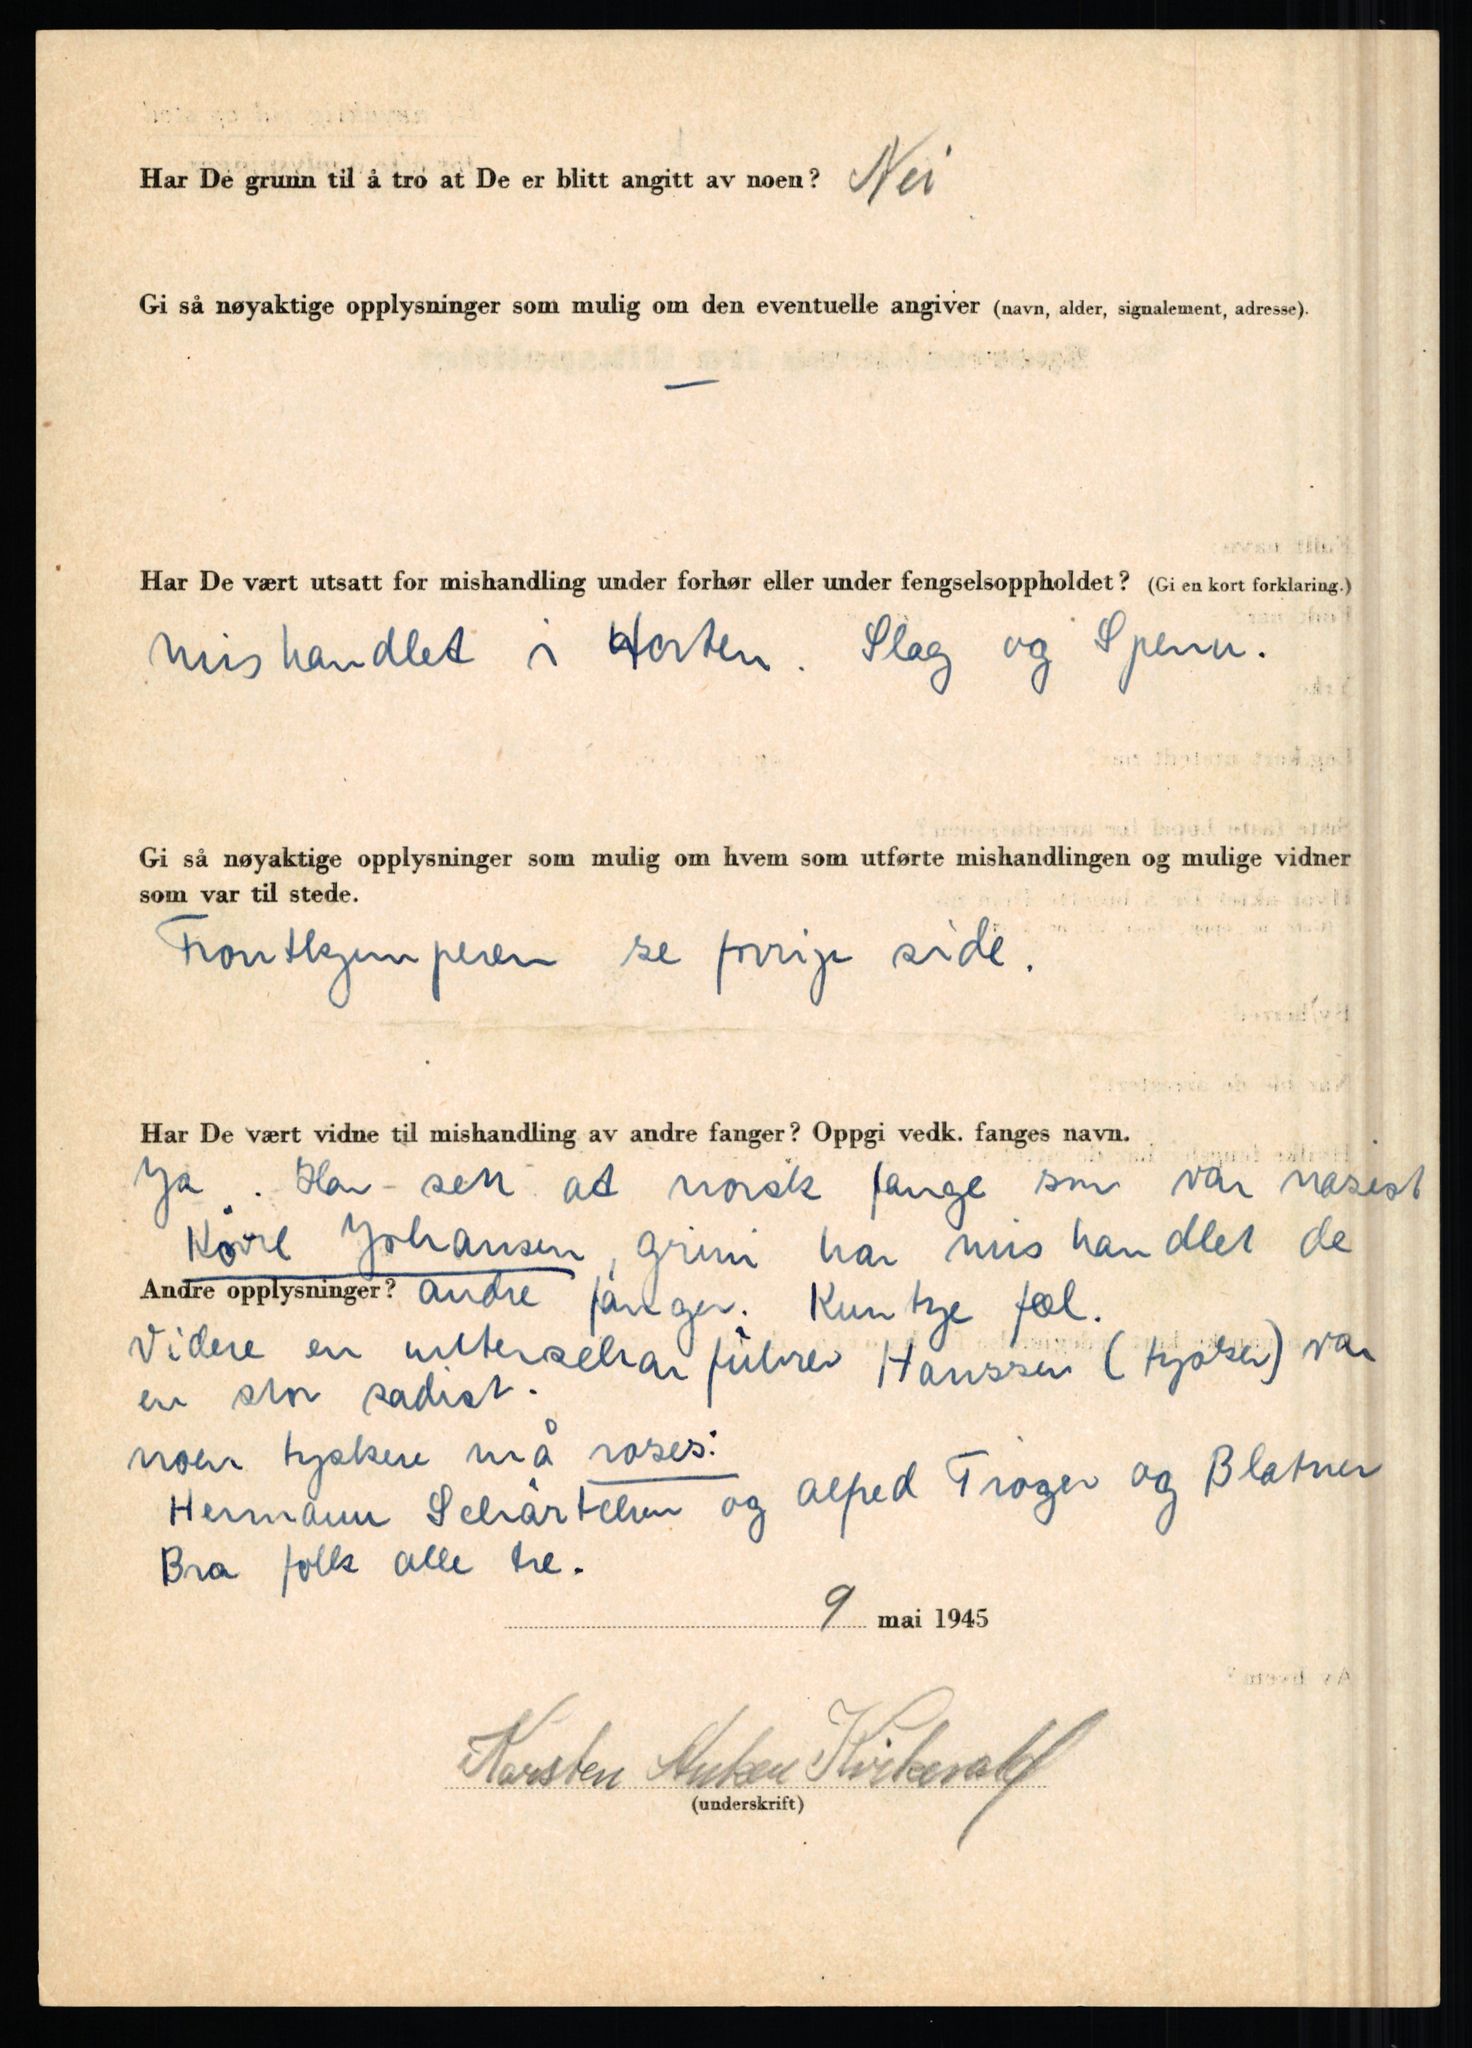 Har De grunn til å tro at De er blitt angitt av noen? Nei
Gi så nøyaktige opplysninger som mulig om den eventuelle angiver (navn, alder, signalement, adresse).
—
Har De vært utsatt for mishandling under forhør eller under fengselsoppholdet? (Gi en kort forklaring.)
Mishandlet i Horten. Slag og Spenn.
Gi så nøyaktige opplysninger som mulig om hvem som utførte mishandlingen og mulige vidner
som var til stede.
Frontkjemperen se forrige side.
Har De vært vidne til mishandling av andre fanger? Oppgi vedk. fanges navn.
Ja. Har sett at norsk fange som var nasist
Kåre Johansen, grini har mishandlet de
Andre opplysninger? andre fanger.
Videre en unterscharführer Hanssen (tysker) var
en stor sadist.
noen tyskere må roses:
Hermann og Alfred Tröger og Blatner
Bra folk alle tre.
9 mai 1945
Karsten Kirkevold
(underskrift)